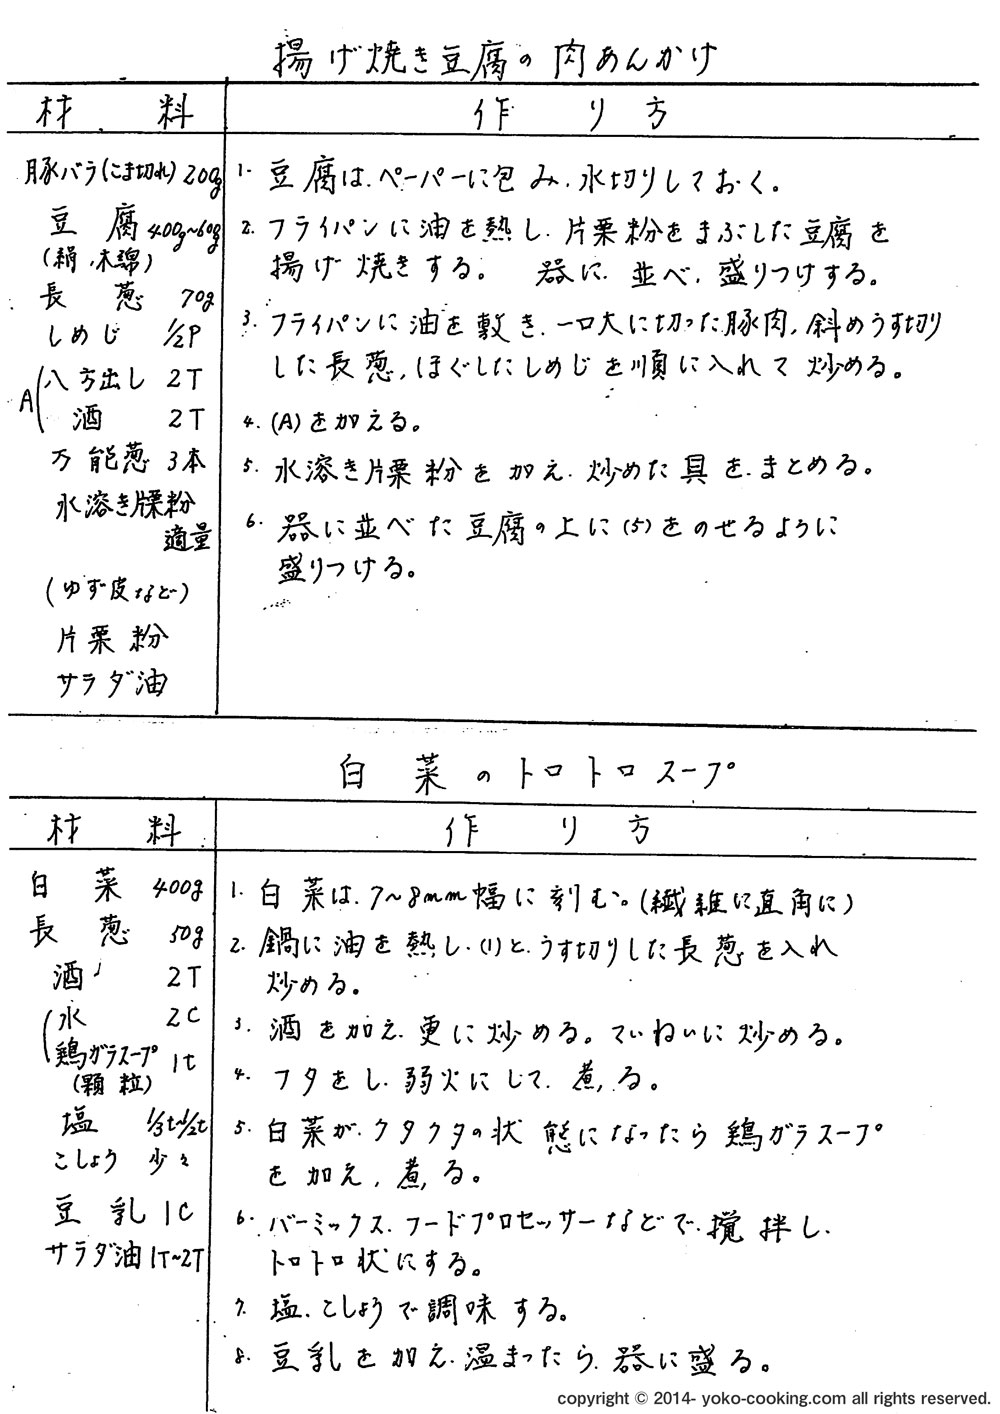 揚げ焼き豆腐の肉あんかけ
材料 作り方
豚バラ(こま切れ) 200g
豆腐 400g~600g
(絹、木綿)
長葱 70g
しめじ 1/2P
A
八方出し 2T
酒 2T
万能葱 3本
水溶き片栗粉
適量
(ゆず皮など)
片栗粉
サラダ油
1. 豆腐は、ペーパーに包み、水切りしておく。
2. フライパンに油を熱し、片栗粉をまぶした豆腐を
揚げ焼きする。 器に、並べ、盛りつけする。
3. フライパンに油を敷き、一口大に切った豚肉、斜めうす切り
した長葱、ほぐしたしめじを順に入れて炒める。
4. (A)を加える。
5. 水溶き片栗粉を加え、炒めた具を、まとめる。
6. 器に並べた豆腐の上に(5)をのせるように
盛りつける。
白菜のトロトロスープ
材料 作り方
白菜 400g
長葱 50g
酒 2T
水 2C
鶏ガラスープ 1t
(顆粒)
塩 1/3t~1/2t
こしょう 少々
豆乳 1C
サラダ油 1T~2T
1. 白菜は、7~8mm幅に刻む。(繊維に直角に)
2. 鍋に油を熱し、(1)と、うす切りした長葱を入れ
炒める。
3. 酒を加え、更に炒める。ていねいに炒める。
4. フタをし、弱火にして、煮る。
5. 白菜が、クタクタの状態になったら鶏ガラスープ
を加え、煮る。
6. バーミックス、フードプロセッサーなどで、撹拌し、
トロトロ状にする。
7. 塩、こしょうで調味する。
8. 豆乳を加え、温まったら、器に盛る。
copyright © 2014- yoko-cooking.com all rights reserved.